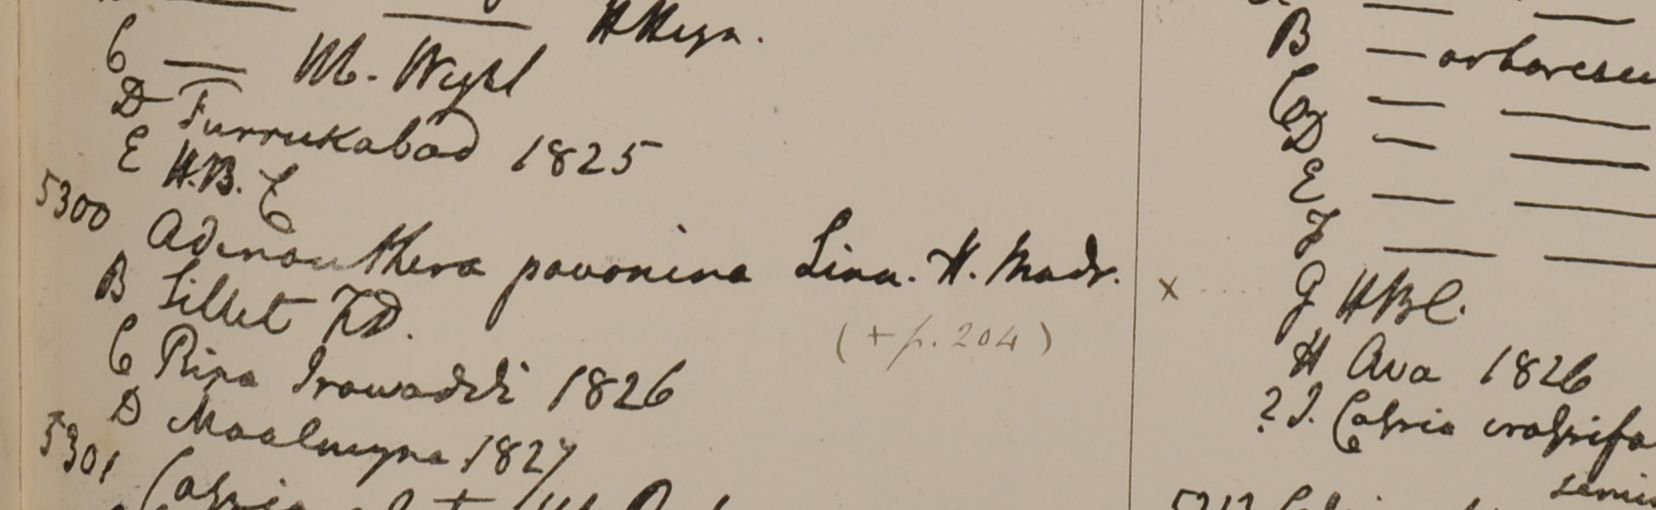 — — H Heyn.
C — M. Wight
D Furrukabad 1825
E H.B.C
5300 Adenanthera pavonina Linn. H. Madr.
B Sillet F.D.
(+ p. 204)
C Ripa Irawaddi 1826
D Moalmyne 1827
5301 Cassia
— —
B — arborescen
C — —
D — —
E — —
F — —
× G HBC.
H Ava 1826
? I. Cassia crassifo
semin